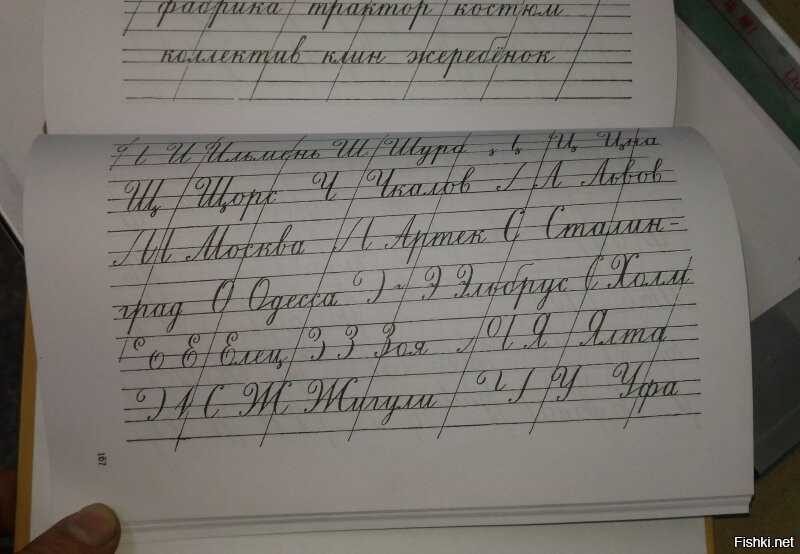 фабрика трактор костюм
коллектив клин жеребёнок
И Ильмень Ш Шура Ц Цна
Щ Щорс Ч Чкалов Л Львов
М Москва А Артек С Сталин-
град О Одесса Э Эльбрус Холм
Е Елец З Зоя Я Ялта
Ж Жигули У Уфа
167
Fishki.net